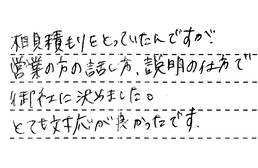 相見積もりをとっていたんですが、
営業の方の話し方、説明の仕方で
御社に決めました。
とても対応が良かったです.